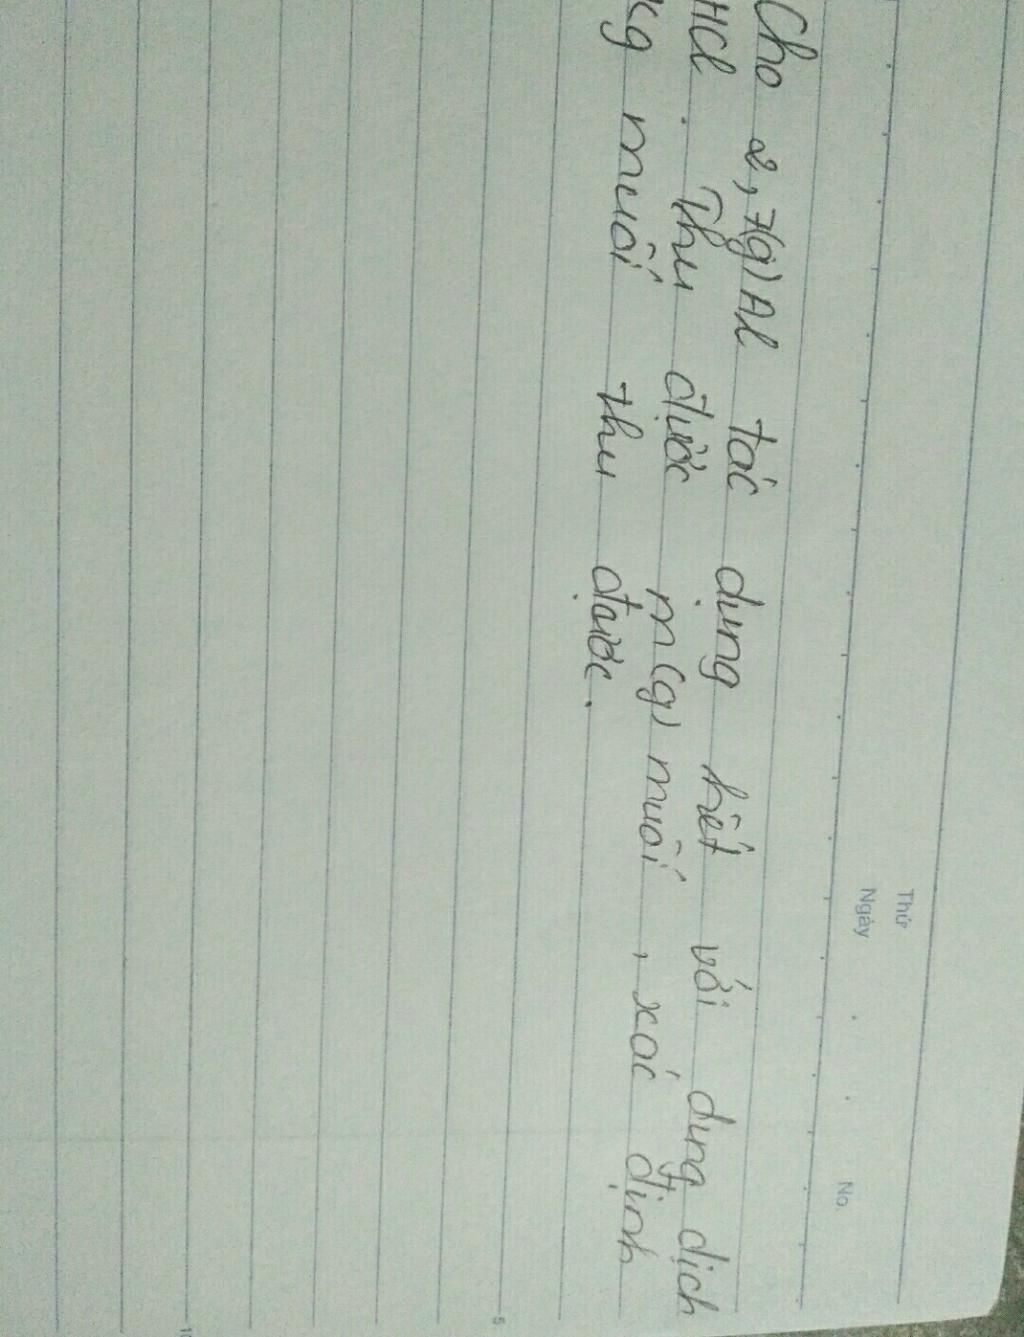 Thứ
Ngày
No.
Cho 2,7(g) Al tác dụng hết với dung dịch
HCl. Thu được m(g) muối, xác định
Kg muối thu được.
5
10